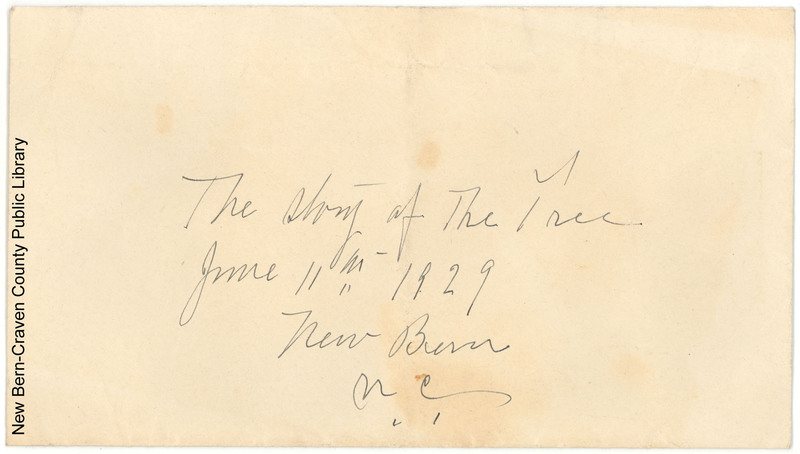 The story of The Tree
June 11th 1929
New Bern
N.C.
New Bern-Craven County Public Library